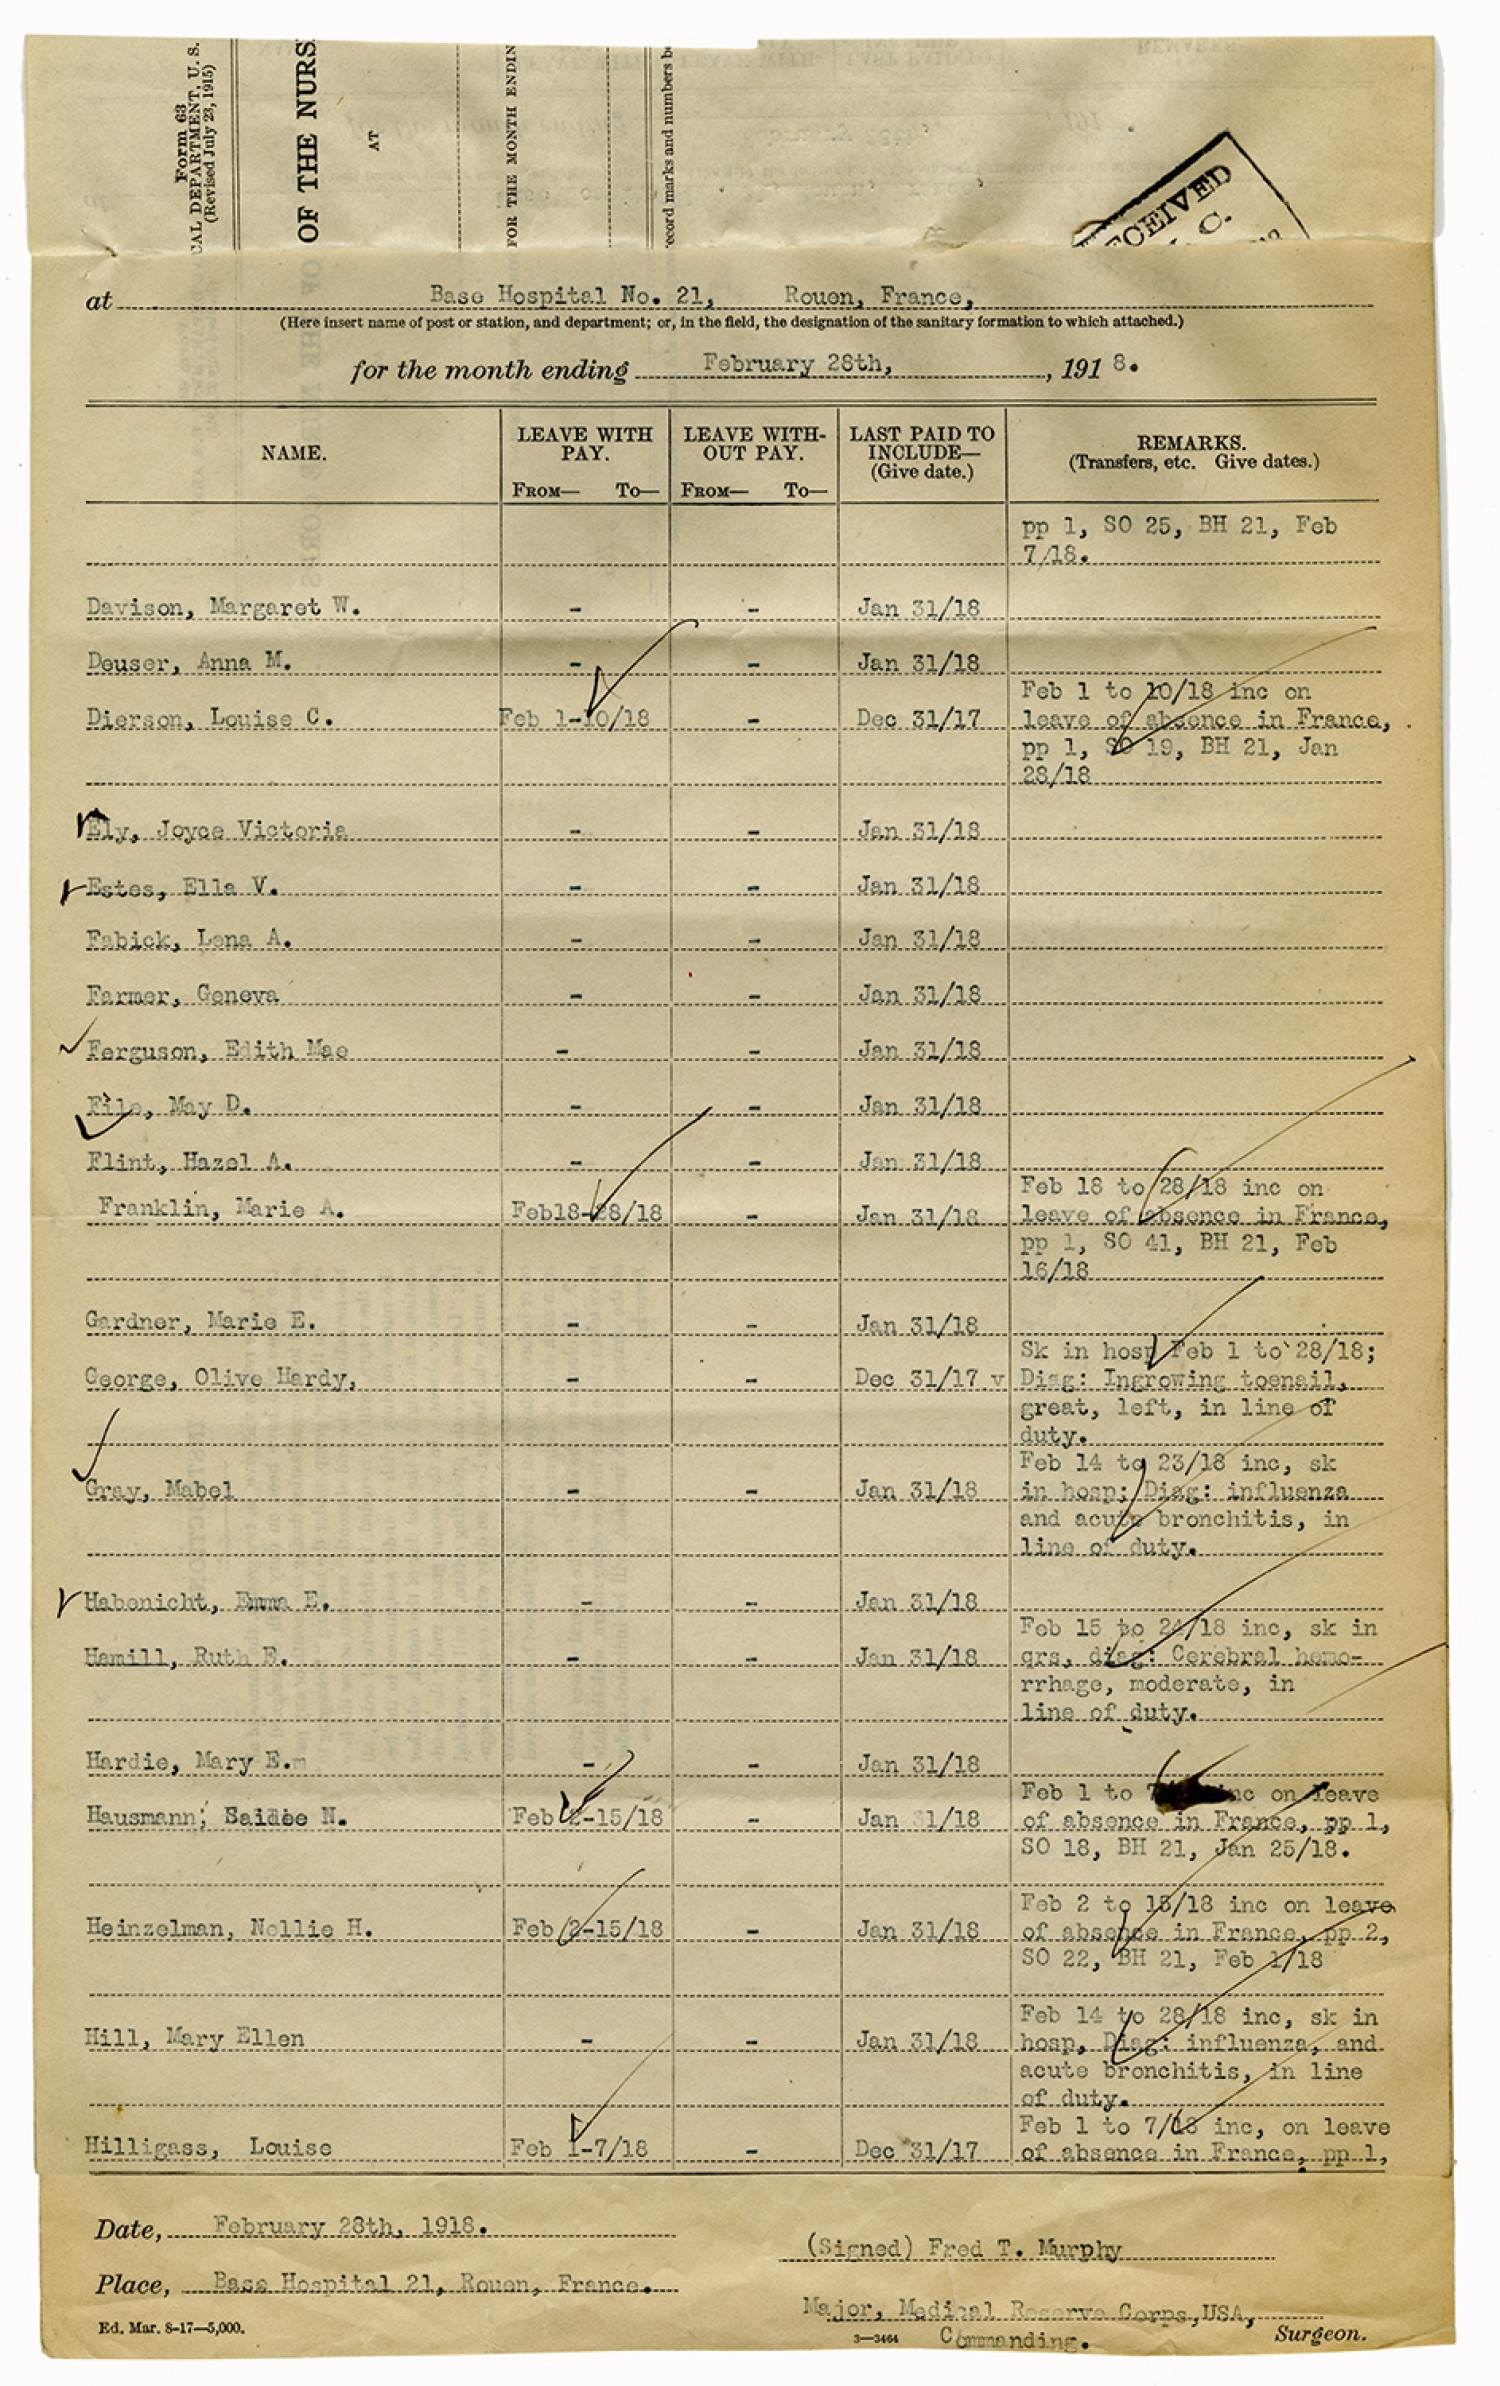 Form 63
CAL DEPARTMENT, U. S.
(Revised July 23, 1915)
OF THE NURS
AT
FOR THE MONTH ENDIN
ecord marks and numbers b
CEIVED
C.
at Base Hospital No. 21, Rouen, France,
(Here insert name of post or station, and department; or, in the field, the designation of the sanitary formation to which attached.)
for the month ending February 28th, , 191 8.
NAME. LEAVE WITH PAY. LEAVE WITH-OUT PAY. LAST PAID TO INCLUDE— (Give date.) REMARKS. (Transfers, etc. Give dates.)
FROM— TO— FROM— TO—
pp 1, SO 25, BH 21, Feb
7/18.
Davison, Margaret W. - - Jan 31/18
Deuser, Anna M. - - Jan 31/18
Feb 1 to 10/18 inc on
Dierson, Louise C. Feb 1-10/18 - Dec 31/17 leave of absence in France,
pp 1, SO 19, BH 21, Jan
28/18
Ely, Joyce Victoria - - Jan 31/18
Estes, Ella V. - - Jan 31/18
Fabick, Lena A. - - Jan 31/18
Farmer, Geneva - - Jan 31/18
Ferguson, Edith Mae - - Jan 31/18
File, May D. - - Jan 31/18
Flint, Hazel A. - - Jan 31/18
Feb 18 to 28/18 inc on
Franklin, Marie A. Feb18-28/18 - Jan 31/18 leave of absence in France,
pp 1, SO 41, BH 21, Feb
16/18
Gardner, Marie E. - - Jan 31/18
Sk in hosp Feb 1 to 28/18;
George, Olive Hardy, - - Dec 31/17 v Diag: Ingrowing toenail,
great, left, in line of
duty.
Feb 14 to 23/18 inc, sk
Gray, Mabel - - Jan 31/18 in hosp; Diag: influenza
and acute bronchitis, in
line of duty.
Habenicht, Emma E. - - Jan 31/18
Feb 15 to 24/18 inc, sk in
Hamill, Ruth E. - - Jan 31/18 qrs, diag: Cerebral hemo-
rrhage, moderate, in
line of duty.
Hardie, Mary E. - - Jan 31/18
Feb 1 to inc on leave
Hausmann, Saidee N. Feb 2-15/18 - Jan 31/18 of absence in France, pp 1,
SO 18, BH 21, Jan 25/18.
Feb 2 to 15/18 inc on leave
Heinzelman, Nellie H. Feb 2-15/18 - Jan 31/18 of absence in France, pp 2,
SO 22, BH 21, Feb 1/18
Feb 14 to 28/18 inc, sk in
Hill, Mary Ellen - - Jan 31/18 hosp, Diag: influenza, and
acute bronchitis, in line
of duty.
Feb 1 to 7/18 inc, on leave
Hilligass, Louise Feb 1-7/18 - Dec 31/17 of absence in France, pp 1,
Date, February 28th, 1918.
(Signed) Fred T. Murphy
Place, Base Hospital 21, Rouen, France.
Major, Medical Reserve Corps,USA,
Ed. Mar. 8-17—5,000. 3—3464 Commanding. Surgeon.